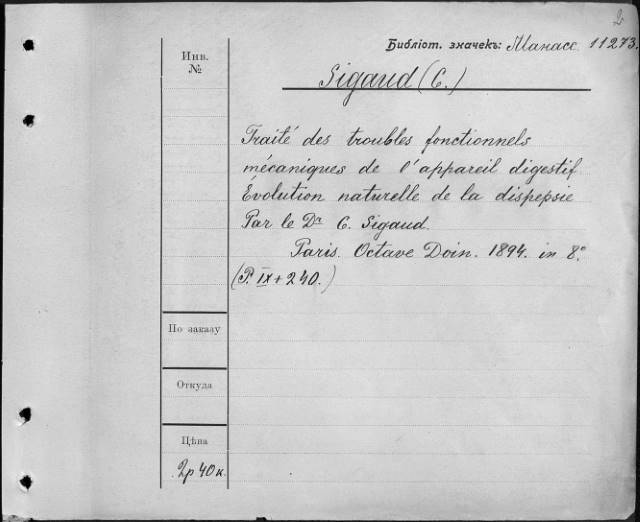 2
Библіот. значекъ: Манасс. 11273.
Инв.
№
Sigaud (C.)
Traité des troubles fonctionnels
mécaniques de l'appareil digestif
Évolution naturelle de la dispepsie
Par le Dr C. Sigaud.
Paris. Octave Doin. 1894. in 8.°
(P. IX + 240.)
По заказу
Откуда
Цѣна
2р 40к.